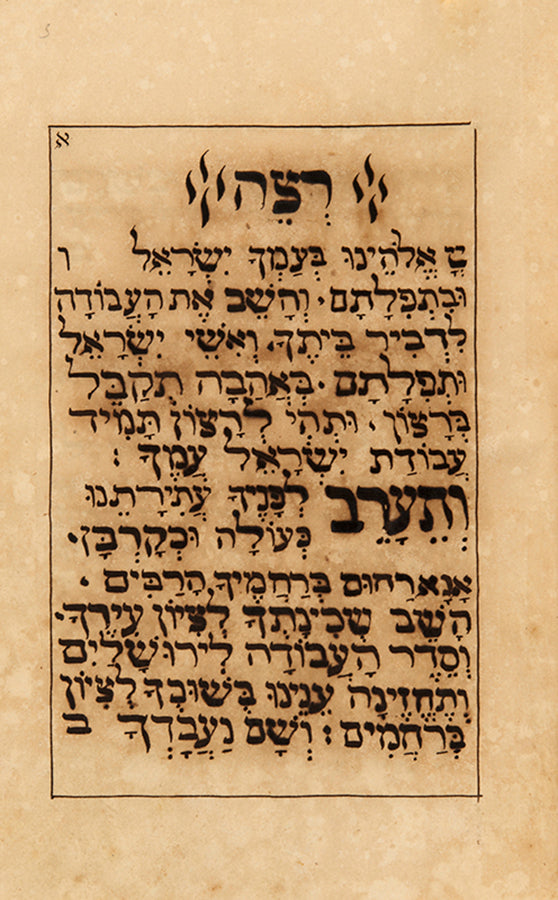 א
רְצֵה
יְיָ אֱלֹהֵינוּ בְּעַמְּךָ יִשְׂרָאֵל ו
וּבִתְפִלָּתָם. וְהָשֵׁב אֶת הָעֲבוֹדָה
לִדְבִיר בֵּיתֶךָ. וְאִשֵּׁי יִשְׂרָאֵל
וּתְפִלָּתָם. בְּאַהֲבָה תְקַבֵּל
בְּרָצוֹן. וּתְהִי לְרָצוֹן תָּמִיד
עֲבוֹדַת יִשְׂרָאֵל עַמֶּךָ :
וְתֵעָרֵב לְפָנֶיךָ עֲתִירָתֵנוּ
כְּעוֹלָה וּכְקָרְבָּן.
אָנָא רַחוּם בְּרַחֲמֶיךָ הָרַבִּים .
הָשֵׁב שְׁכִינָתְךָ לְצִיּוֹן עִירֶךָ.
וְסֵדֶר הָעֲבוֹדָה לִירוּשָׁלַיִם
וְתֶחֱזֶינָה עֵנֵינוּ בְּשׁוּבְךָ לְצִיּוֹן
בְּרַחֲמִים : וְשָׁם נַעֲבָדְךָ ב